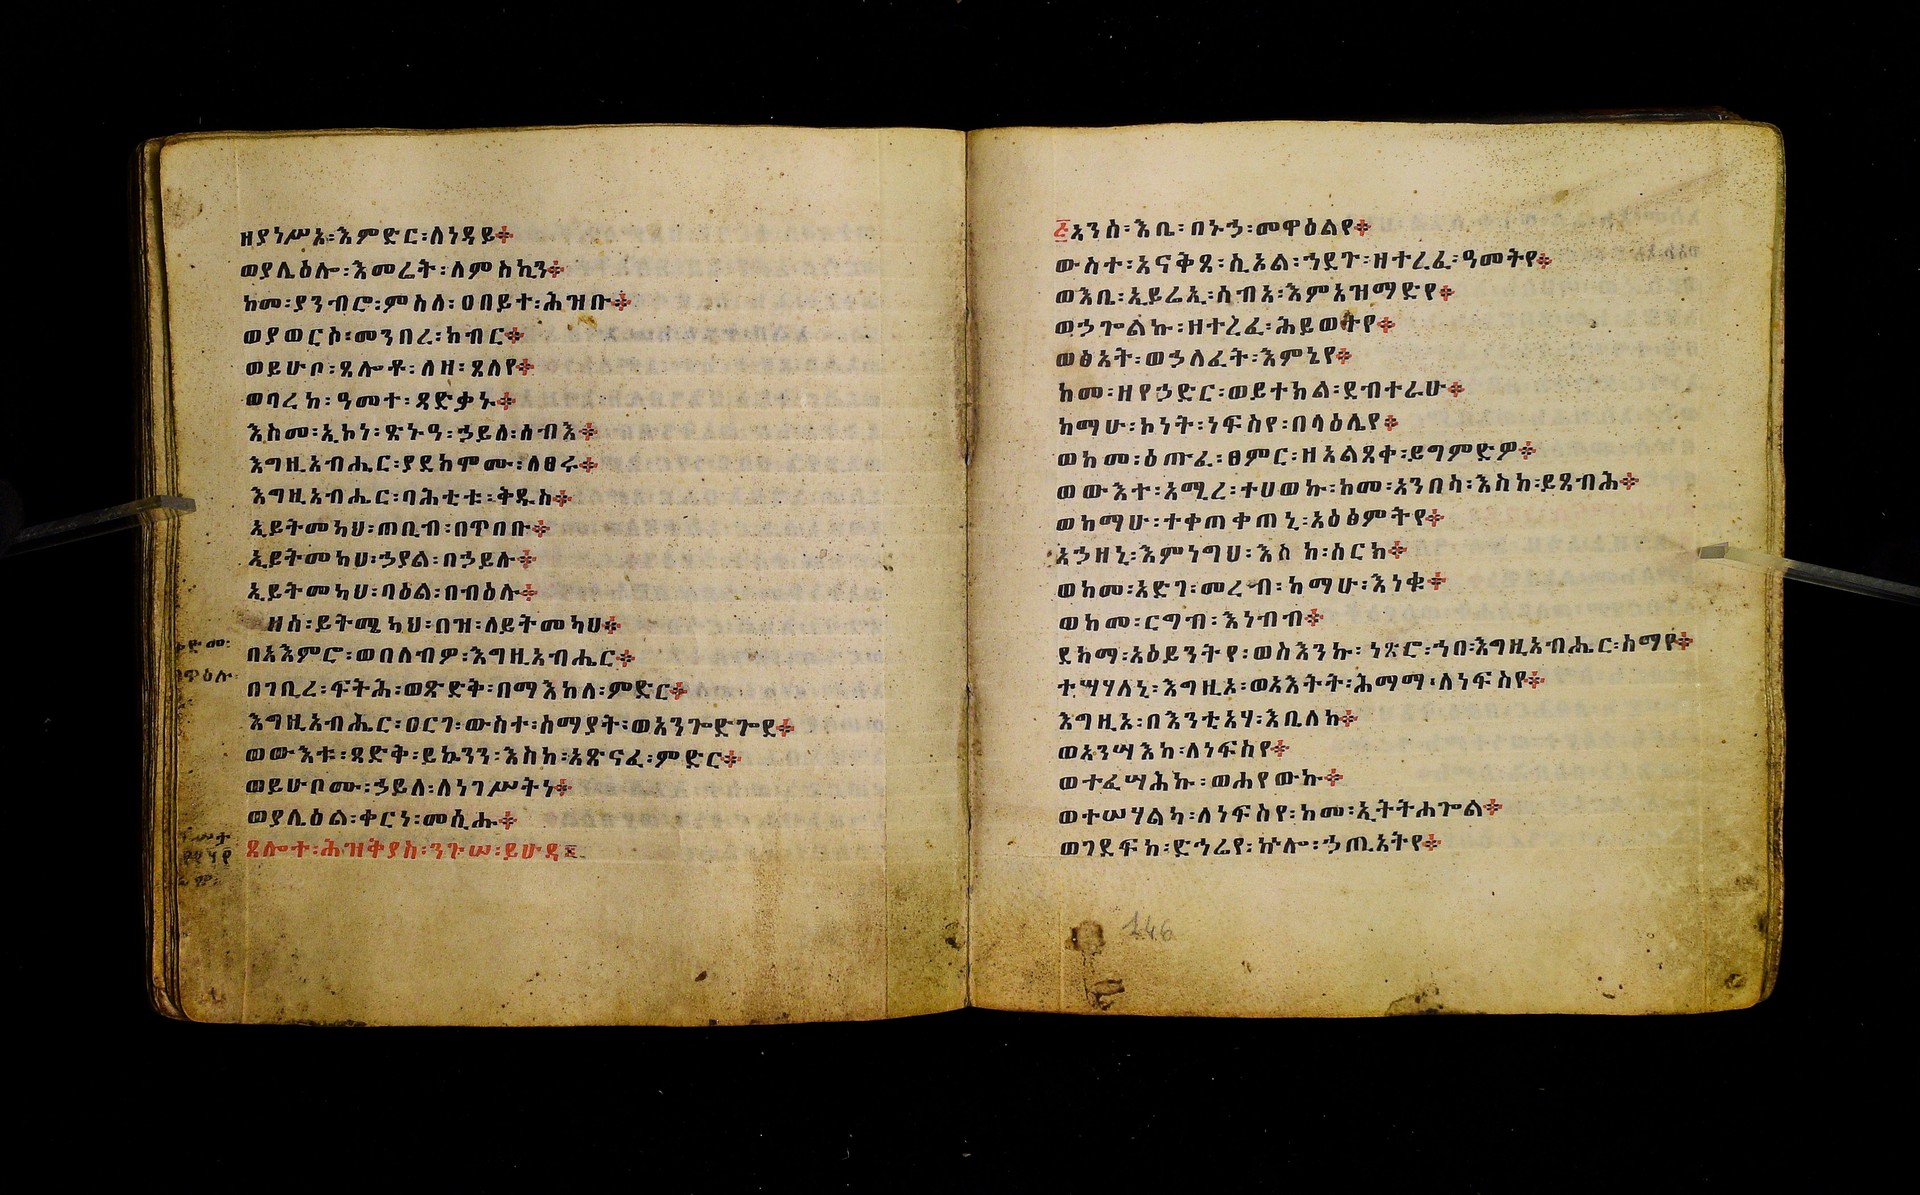 ዘያነሥአ፡እምድር፡ለነዳይ።
ወያሌዕሎ፡እመሬት፡ለምስኪን።
ከመ፡ያንብሮ፡ምስለ፡ዐበይተ፡ሕዝቡ።
ወያወርስ፡መንበረ፡ክብር።
ወይሁቦ፡ጸሎቶ፡ለዘ፡ጸለየ።
ወባረከ፡ዓመተ፡ጻድቃኑ።
እስመ፡ኢኮነ፡ጽኑዓ፡ኃይለ፡ሰብእ።
እግዚአብሔር፡ያደክሞሙ፡ለፀሩ።
እግዚአብሔር፡ባሕቲቱ፡ቅዱስ።
ኢይትመካህ፡ጠቢብ፡በጥበቡ።
ኢይትመካህ፡ኃያል፡በኃይሉ።
ኢይትመካህ፡ባዕል፡በብዕሉ።
ዘሰ፡ይትሜካህ፡በዝ፡ለይትመካህ።
በአእምሮ፡ወበለብዎ፡እግዚአብሔር።
በገቢረ፡ፍትሕ፡ወጽድቅ፡በማእከለ፡ምድር።
እግዚአብሔር፡ዐርገ፡ውስተ፡ሰማያት፡ወአንጐድጐደ።
ወውእቱ፡ጻድቅ፡ይኴንን፡እስከ፡አጽናፈ፡ምድር።
ወይሁቦሙ፡ኃይለ፡ለነገሥትነ።
ወያሌዕል፡ቀርነ፡መሲሑ።
ጸሎተ፡ሕዝቅያስ፡ንጉሠ፡ይሁዳ።
አንሰ፡እቤ፡በኑኃ፡መዋዕልየ።
ውስተ፡አናቅጸ፡ሲኦል፡ኀደጉ፡ዘተረፈ፡ዓመትየ።
ወእቤ፡ኢይሬኢ፡ሰብአ፡እምአዝማድየ።
ወኃጐልኩ፡ዘተረፈ፡ሕይወትየ።
ወፅአት፡ወኃለፈት፡እምኔየ።
ከመ፡ዘየኃድር፡ወይተክል፡ደብተራሁ።
ከማሁ፡ኮነት፡ነፍስየ፡በላዕሌየ።
ወከመ፡ዕጡፈ፡ፀምር፡ዘአልጸቀ፡ይግምድዎ።
ወውእተ፡አሚረ፡ተሀወኩ፡ከመ፡አንበሳ፡እስከ፡ይጸብሕ።
ወከማሁ፡ተቀጠቀጠኒ፡አዕፅምትየ።
አኃዘኒ፡እምነግህ፡እስከ፡ሰርክ።
ወከመ፡አድገ፡መረብ፡ከማሁ፡እነቁ።
ወከመ፡ርግብ፡እነብብ።
ደክማ፡አዕይንትየ፡ወስእንኩ፡ነጽሮ፡ኀበ፡እግዚአብሔር፡ሰማየ።
ተሣሃለኒ፡እግዚአ፡ወአእትት፡ሕማማ፡ለነፍስየ።
እግዚአ፡በእንቲአሃ፡እቤለከ።
ወአንሣእከ፡ለነፍስየ።
ወተፈሣሕኩ፡ወሐየውኩ።
ወተሠሃልካ፡ለነፍስየ፡ከመ፡ኢትትሐጐል።
ወገደፍከ፡ድኅሬየ፡ኵሎ፡ኃጢአትየ።
146